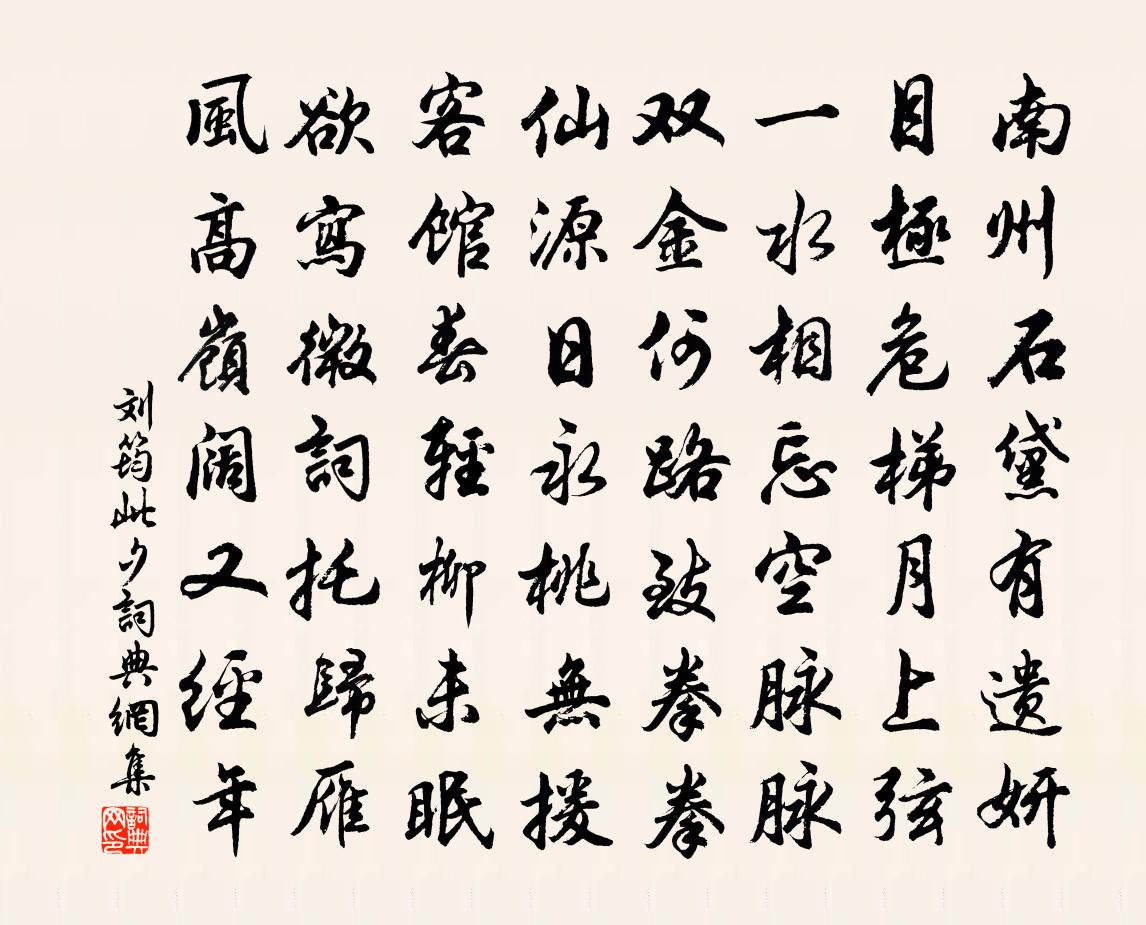 南州石黛有遗妍
目極危梯月上弦
一水相忘空脉脉
双金何路致拳拳
仙源日永桃無援
客館春輕柳未眠
欲寫微詞托歸雁
風高嶺阔又經年
刘筠此夕詞典網集
詞典網印